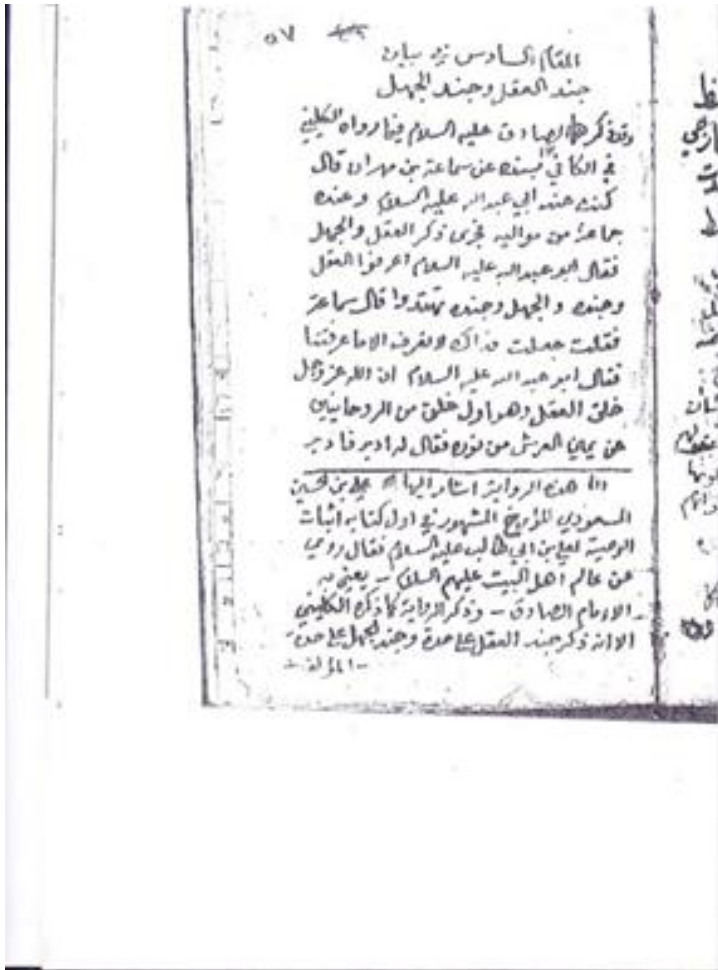 ٥٧
المقام السادس في بيان
جند العقل وجند الجهل
وقد ذكرها الصادق عليه السلام فيما رواه الكليني
في الكافي بسنده عن سماعة بن مهران قال
كنت عند ابي عبد الله عليه السلام وعنده
جماعة من مواليه فجرى ذكر العقل والجهل
فقال ابو عبد الله عليه السلام اعرفوا العقل
وجنده والجهل وجنده تهتدوا قال سماعة
فقلت جعلت فداك لا نعرف الا ما عرفتنا
فقال ابو عبد الله عليه السلام ان الله عز وجل
خلق العقل وهو اول خلق من الروحانيين
عن يمين العرش من نوره فقال له ادبر فادبر
(١) هذه الرواية اشار اليها علي بن الحسين
المسعودي المؤرخ المشهور في اول كتابه اثبات
الوصية لعلي بن ابي طالب عليه السلام فقال روي
عن عالم اهل البيت عليهم السلام - يعني به
الامام الصادق - وذكر الرواية كما ذكره الكليني
الا انه ذكر جند العقل على حدة وجند الجهل على حدة
- المؤلف -